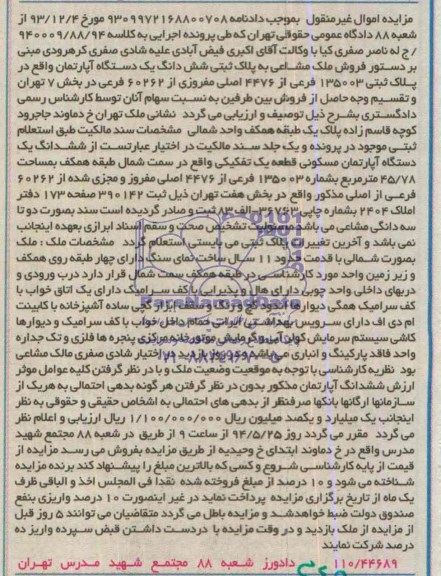 مزایده اموال غیرمنقول بموجب دادنامه ۹۳۰۹۹۷۲۱۶۸۸۰۰۷۰۸ مورخ ۹۳/۱۲/۴ از
شعبه ۸۸ دادگاه عمومی حقوقی تهران که طی پرونده اجرایی به کلاسه ۹۴۰۰۰۹/۸۸/۹۴
/ ج له ناصر صفری کیا با وکالت آقای اکبری فیض آبادی علیه شادی صفری کرهرودی مبنی
بر دستور فروش ملک مشاعی به پلاک ثبتی شش دانگ یک دستگاه آپارتمان واقع در
پلاک ثبتی ۱۳۵۰۰۳ فرعی از ۴۴۷۶ اصلی مفروزی از ۶۰۲۶۲ فرعی در بخش ۷ تهران
و تقسیم وجه حاصل از فروش بین طرفین به نسبت سهام آنان توسط کارشناس رسمی
دادگستری بشرح ذیل توصیف و ارزیابی می گردد نشانی ملک تهران خ دماوند جاجرود
کوچه قاسم زاده پلاک یک طبقه همکف واحد شمالی مشخصات سند مالکیت طبق استعلام
ثبتی موجود در پرونده و یک جلد سند مالکیت در اختیار عبارتست از ششدانگ یک
دستگاه آپارتمان مسکونی قطعه یک تفکیکی واقع در سمت شمال طبقه همکف بمساحت
۴۵/۷۸ مترمربع بشماره ۱۳۵۰۰۳ فرعی از ۴۴۷۶ اصلی مفروز و مجزی شده از ۶۰۲۶۲
فرعی از اصلی مذکور واقع در بخش هفت تهران ذیل ثبت ۳۹۰۱۴۲ صفحه ۱۷۳ دفتر
املاک ۲۴۰۴ بشماره چاپی الف ۸۳ ثبت و صادر گردیده است سند بصورت دو تا
سه دانگی مشاعی می باشد مسولیت تشخیص صحت و سقم اسناد ابرازی بعهده اینجانب
نمی باشد و آخرین تغییرات پلاک ثبتی می بایستی استعلام گردد مشخصات ملک : ملک
بصورت شمالی با قدمت حدود ۱۱ سال ساخت نمای سنگ دارای چهار طبقه روی همکف
و زیر زمین واحد مورد کارشناسی در طبقه همکف سمت شمال قرار دارد درب ورودی و
دربهای داخلی واحد چوبی دارای هال و پذیرایی با کف سرامیک دارای یک اتاق خواب با
کف سرامیک همگی دیوارها اندود گچ و رنگ ابزار گچی ساده آشپزخانه با کابینت
ام دی اف دارای سرویس بهداشتی ایرانی حمام داخل خواب با کف سرامیک و دیوارها
کاشی سیستم سرمایش کولر آبی و گرمایش موتورخانه مرکزی پنجره ها فلزی و تک جداره
واحد فاقد پارکینگ و انباری می باشد در روز بازدید در اختیار شادی صفری مالک مشاعی
بود نظریه کارشناسی با توجه به موقعیت وضعیت ملک و با در نظر گرفتن کلیه عوامل موثر
ارزش ششدانگ آپارتمان مذکور بدون در نظر گرفتن هر گونه بدهی احتمالی به هریک از
سازمانها ارگانها بانکها صرفنظر از بدهی های احتمالی به اشخاص حقیقی و حقوقی به نظر
اینجانب یک میلیارد و یکصد میلیون ریال ۱/۱۰۰/۰۰۰/۰۰۰ ریال ارزیابی و اعلام نظر
می گردد مقرر می گردد روز ۹۴/۵/۲۵ از ساعت ۹ از طریق در شعبه ۸۸ مجتمع شهید
مدرس واقع در خ دماوند ابتدای خ وحیدیه از طریق مزایده بفروش می رسد مزایده از
قیمت از پایه کارشناسی شروع و کسی که بالاترین مبلغ را پیشنهاد کند برنده مزایده
شناخته می شود و ۱۰ درصد از مبلغ فروخته شده نقدا فی المجلس اخذ و الباقی ظرف
یک ماه از تاریخ برگزاری مزایده پرداخت نماید در غیر اینصورت ۱۰ درصد واریزی بنفع
صندوق دولت ضبط خواهد شد و مزایده باطل می گردد متقاضیان می توانند ۵ روز قبل
از مزایده از ملک بازدید و در وقت مزایده با دردست داشتن قبض سپرده واریز ده
درصد شرکت نمایند
۱۱۰/۴۴۶۸۹ دادورز شعبه ۸۸ مجتمع شهید مدرس تهران